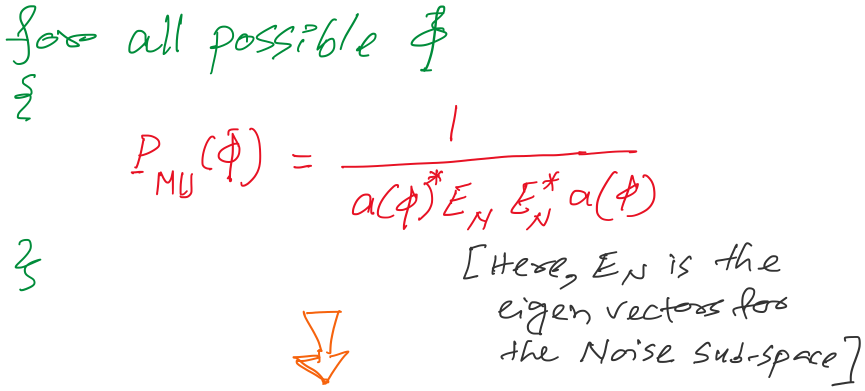 for all possible ϕ
{
P_MU(ϕ) = 1 / (a(ϕ)^* E_N E_N^* a(ϕ))
}
[Here, E_N is the
eigen vectors for
the Noise sub-space]